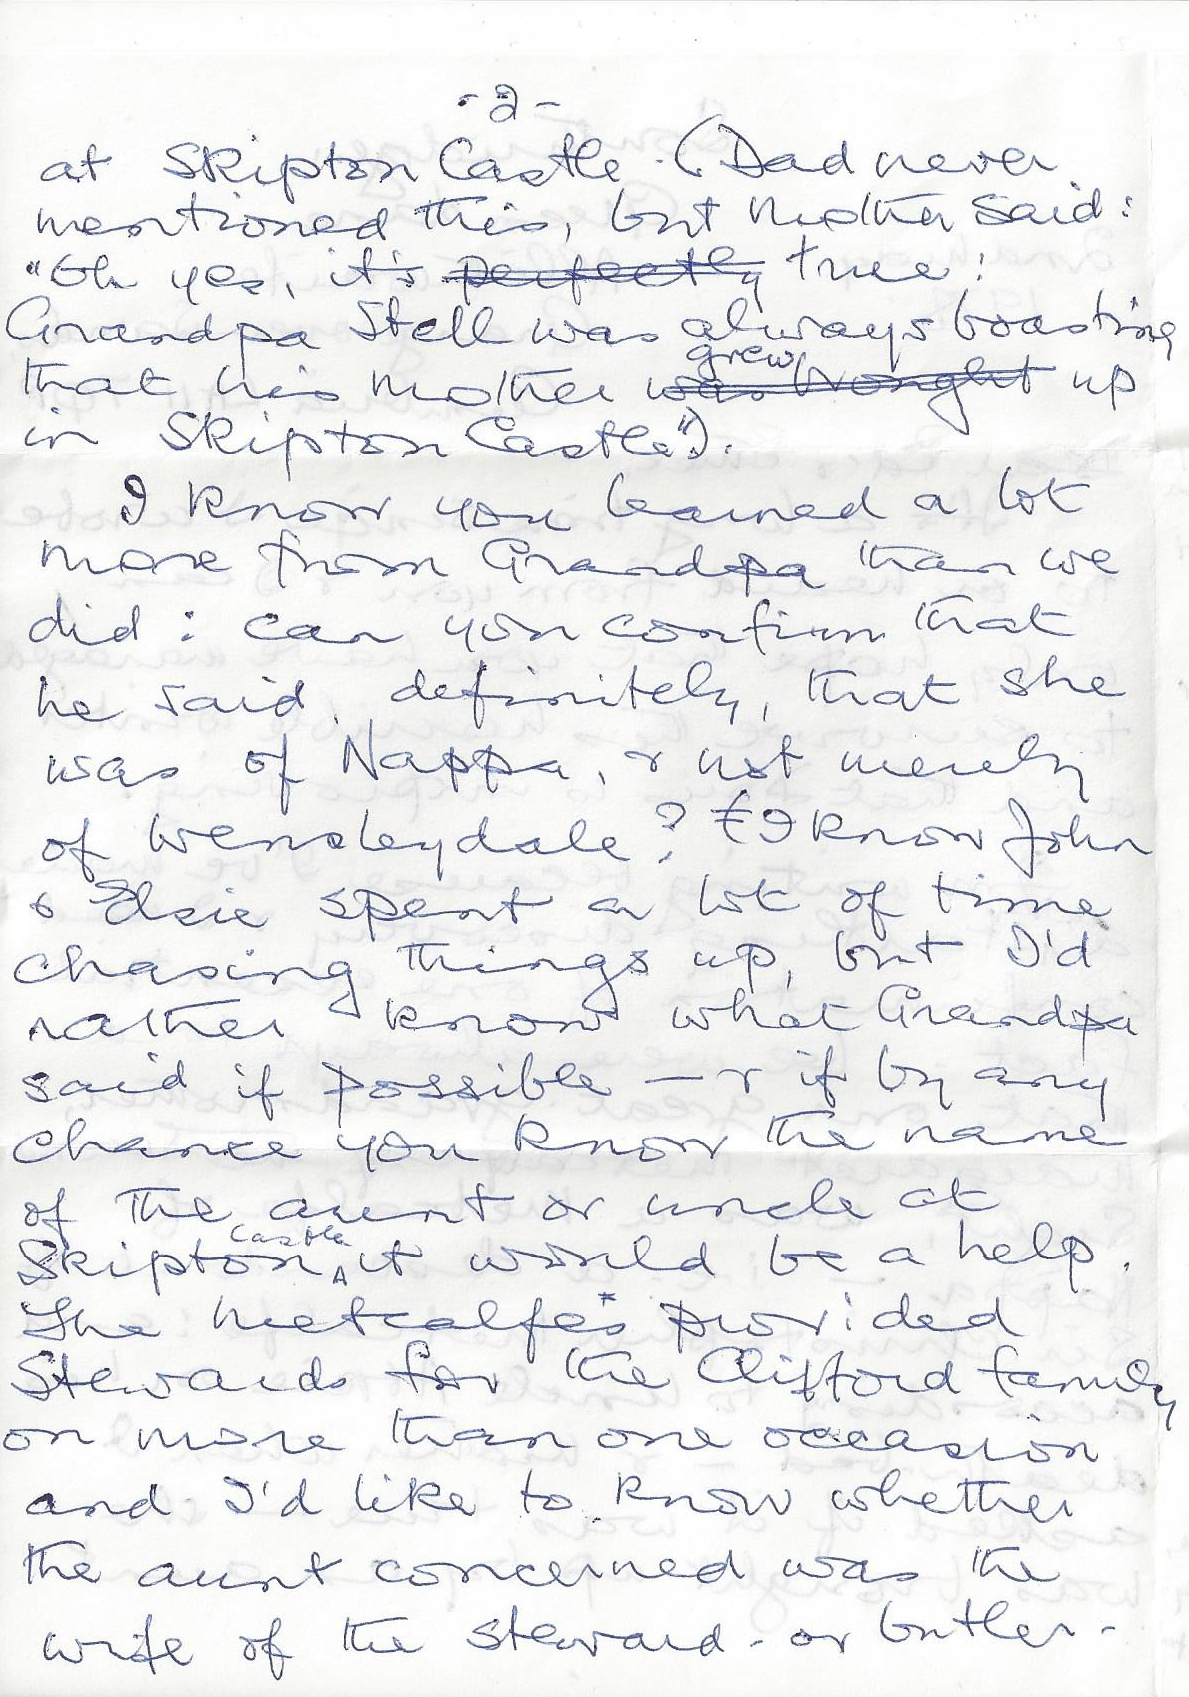 -2-
at Skipton Castle. (Dad never
mentioned this, but Mother said:
"Oh yes, it's perfectly true:
Grandpa Stell was always boasting
grew
that his mother was brought up
in Skipton Castle").
I know you learned a lot
more from Grandpa than we
did: can you confirm that
he said, definitely, that she
was of Nappa, & not merely
of Wensleydale? I know John
& Elsie spent a lot of time
chasing things up, but I'd
rather know what Grandpa
said if possible — & if by any
chance you know the name
of the aunt or uncle at
Castle
Skipton it would be a help.
The Metcalfes provided
Stewards for the Clifford family
on more than one occasion
and I'd like to know whether
the aunt concerned was the
wife of the steward - or butler -